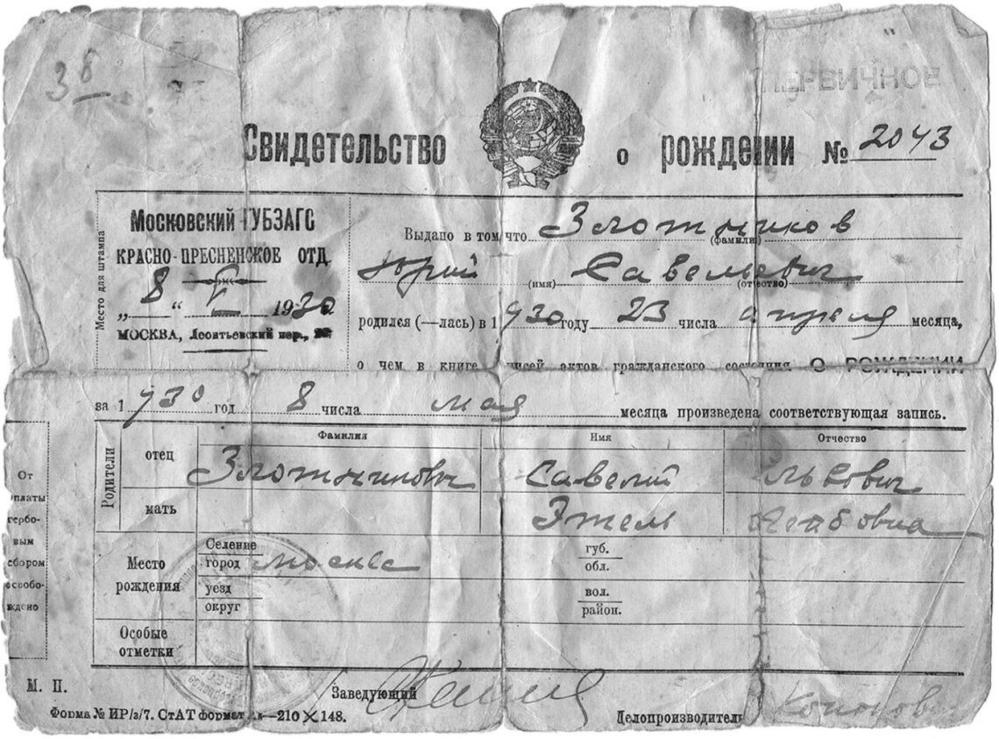 38
ПЕРВИЧНОЕ
Свидетельство о рождении № 2043
Место для штампа
Московский ГУБЗАГС
КРАСНО-ПРЕСНЕНСКОЕ ОТД.
„ 8 “ 1930
МОСКВА, Леонтьевский пер.,
Выдано в том, что Злотников
(фамилия)
Юрий Савельевич
(имя) (отчество)
родился (—лась) в 1930 году 23 числа апреля месяца,
о чем в книге записей актов гражданского состояния О РОЖДЕНИИ
за 1930 год 8 числа мая месяца произведена соответствующая запись.
Родители
Фамилия Имя Отчество
отец Савелий Львович
мать Этель
Место рождения
Селение
город Москва
губ.
обл.
уезд
округ
вол.
район.
Особые отметки
От
платы
гербо-
вым
сбором
освобо-
ждено
М. П.
Заведующий
Форма № ИР/з/7. СтАТ формат —210×148.
Делопроизводитель